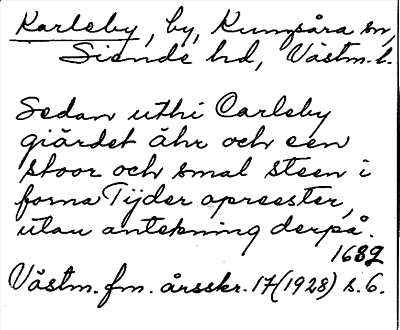 Karleby, by, Kungsåra sn,
Siende hd, Västm. l.
Sedan uthi Carleby
giärdet åhr och een
stoor och smal steen i
forna Tijder opreester,
utan antekning derpå.
1682
Västm. fm. årsskr. 17 (1928) s. 6.